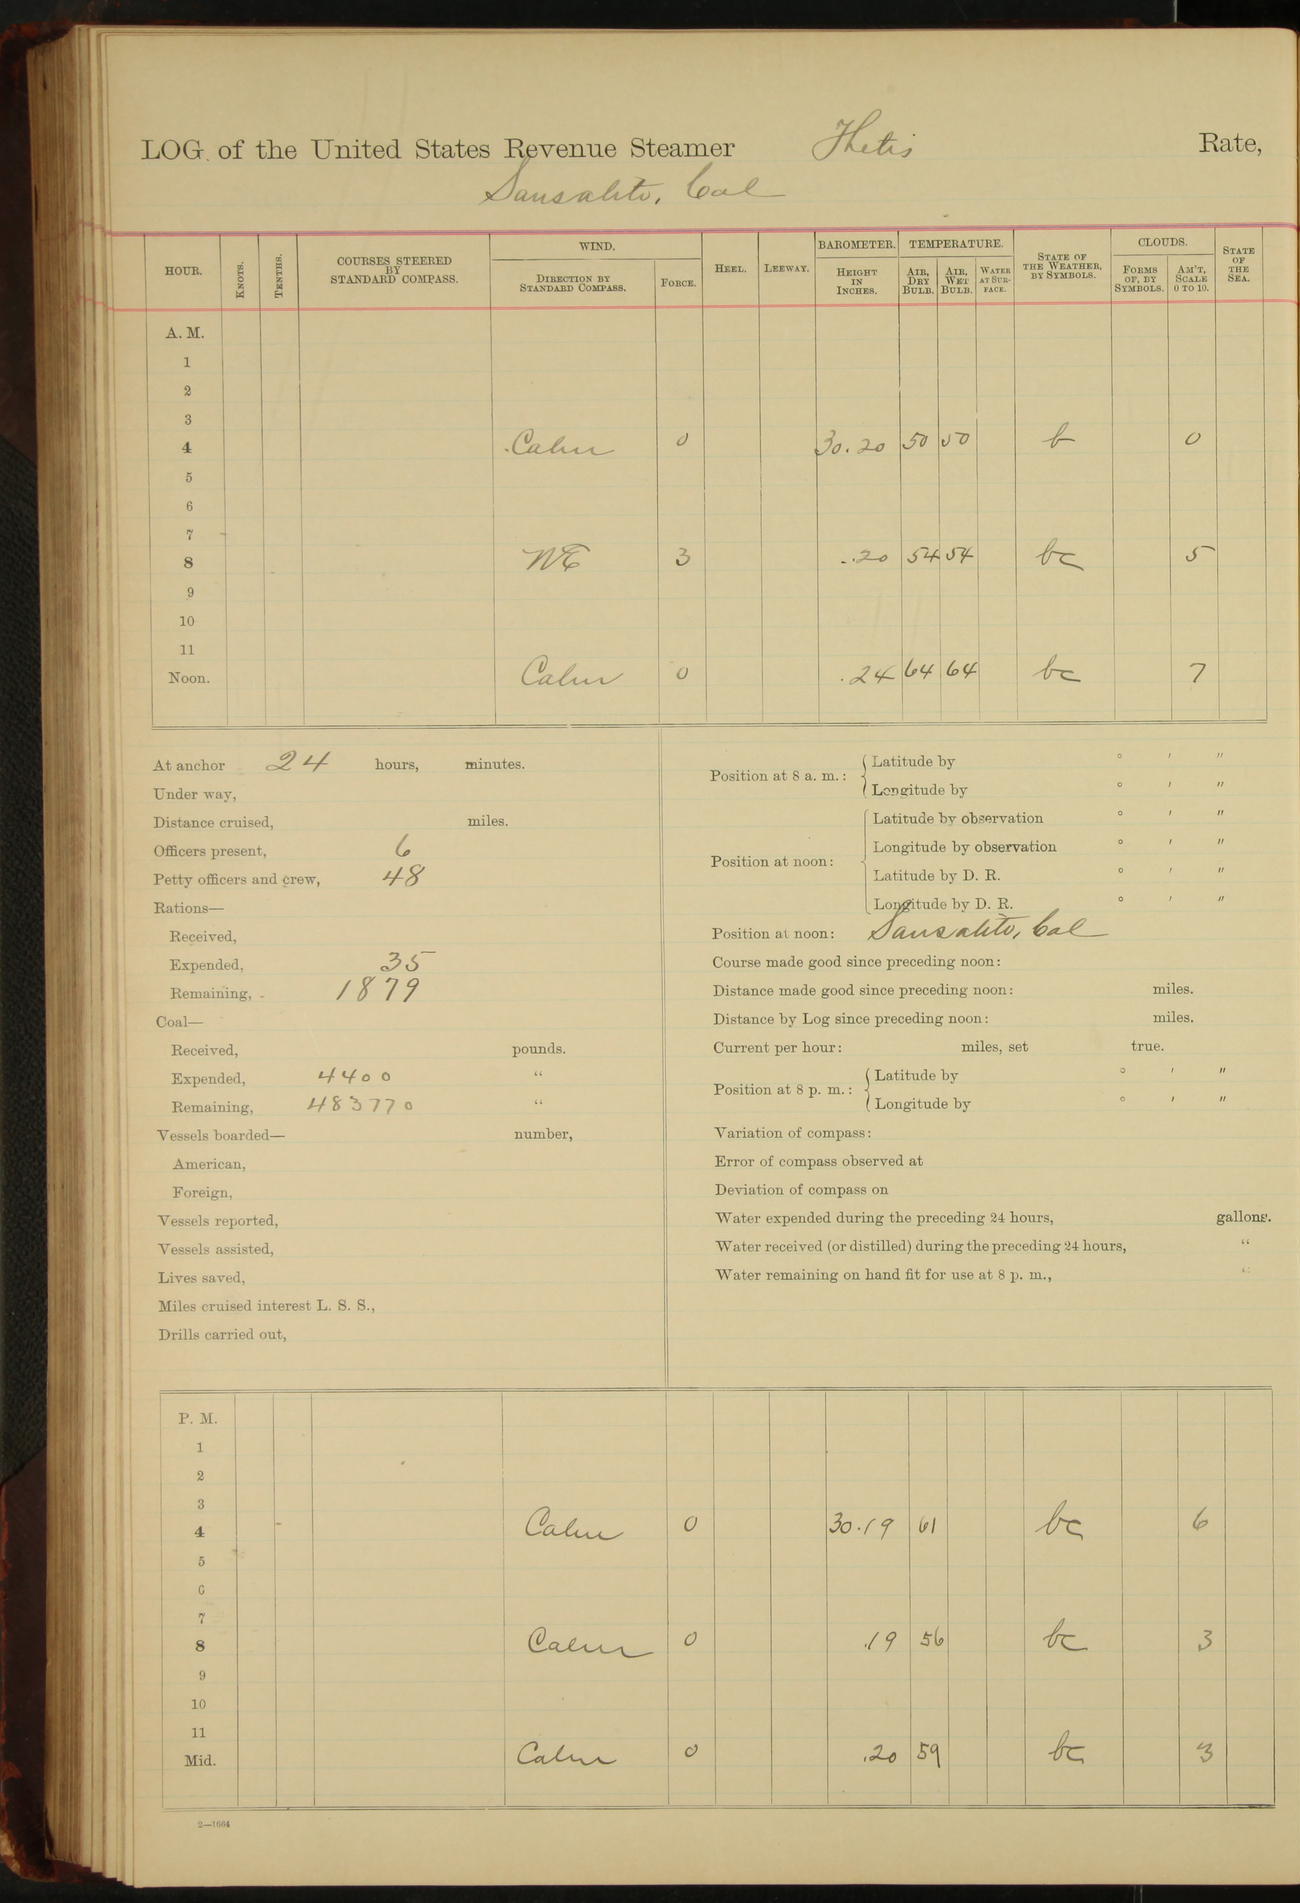 LOG of the United States Revenue Steamer Thetis Rate,
Sausalito, Cal
HOUR. KNOTS. TENTHS. COURSES STEERED BY STANDARD COMPASS. WIND. DIRECTION BY STANDARD COMPASS. FORCE. HEEL. LEEWAY. BAROMETER. HEIGHT IN INCHES. TEMPERATURE. AIR, DRY BULB. AIR, WET BULB. WATER AT SURFACE. STATE OF THE WEATHER, BY SYMBOLS. CLOUDS. FORMS OF, BY SYMBOLS. AM'T, SCALE 0 TO 10. STATE OF THE SEA.
A. M.
1
2
3
4 Calm 0 30.20 50 50 b 0
5
6
7
8 NE 3 .20 54 54 bc 5
9
10
11
Noon. Calm 0 .24 64 64 bc 7
At anchor 24 hours, minutes.
Under way,
Distance cruised, miles.
Officers present, 6
Petty officers and crew, 48
Rations—
Received,
Expended, 35
Remaining, 1879
Coal—
Received, pounds.
Expended, 4400 "
Remaining, 483770 "
Vessels boarded— number,
American,
Foreign,
Vessels reported,
Vessels assisted,
Lives saved,
Miles cruised interest L. S. S.,
Drills carried out,
Position at 8 a. m.: Latitude by ° ′ ″
Longitude by ° ′ ″
Position at noon: Latitude by observation ° ′ ″
Longitude by observation ° ′ ″
Latitude by D. R. ° ′ ″
Longitude by D. R. ° ′ ″
Position at noon: Sausalito, Cal
Course made good since preceding noon:
Distance made good since preceding noon: miles.
Distance by Log since preceding noon: miles.
Current per hour: miles, set true.
Position at 8 p. m.: Latitude by ° ′ ″
Longitude by ° ′ ″
Variation of compass:
Error of compass observed at
Deviation of compass on
Water expended during the preceding 24 hours, gallons.
Water received (or distilled) during the preceding 24 hours, "
Water remaining on hand fit for use at 8 p. m., "
P. M.
1
2
3
4 Calm 0 30.19 61 bc 6
5
6
7
8 Calm 0 .19 56 bc 3
9
10
11
Mid. Calm 0 .20 59 bc 3
2—1664